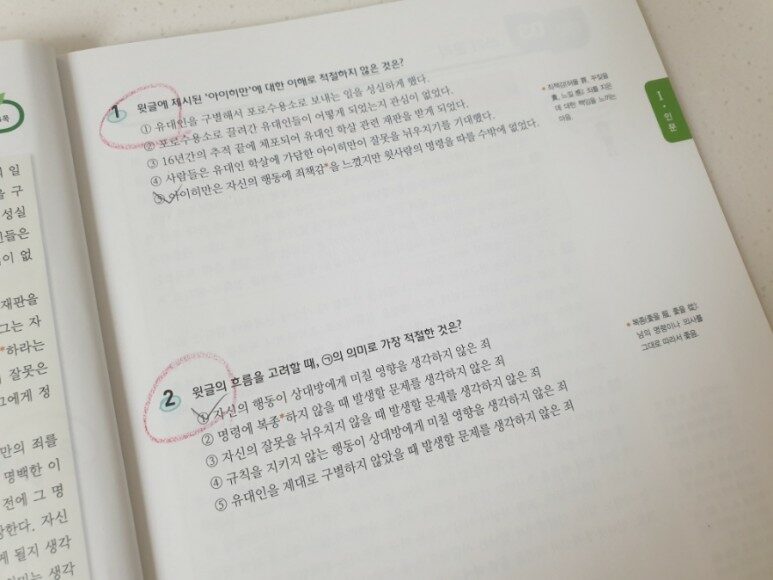 1 윗글에 제시된 '아이히만'에 대한 이해로 적절하지 않은 것은?
① 유대인을 구별해서 포로수용소로 보내는 일을 성실하게 했다.
② 포로수용소로 끌려간 유대인들이 어떻게 되었는지 관심이 없었다.
③ 16년간의 추적 끝에 체포되어 유대인 학살 관련 재판을 받게 되었다.
④ 사람들은 유대인 학살에 가담한 아이히만이 잘못을 뉘우치기를 기대했다.
⑤ 아이히만은 자신의 행동에 죄책감*을 느꼈지만 윗사람의 명령을 따를 수밖에 없었다.
* 죄책감(허물 罪, 꾸짖을
責, 느낄 感): 죄를 지은
데 대한 책임을 느끼는
마음.
Ⅰ. 인문
2 윗글의 흐름을 고려할 때, ㉠의 의미로 가장 적절한 것은?
① 자신의 행동이 상대방에게 미칠 영향을 생각하지 않은 죄
② 명령에 복종*하지 않을 때 발생할 문제를 생각하지 않은 죄
③ 자신의 잘못을 뉘우치지 않을 때 발생할 문제를 생각하지 않은 죄
④ 규칙을 지키지 않는 행동이 상대방에게 미칠 영향을 생각하지 않은 죄
⑤ 유대인을 제대로 구별하지 않았을 때 발생할 문제를 생각하지 않은 죄
* 복종(좇을 服, 좇을 從):
남의 명령이나 의사를
그대로 따라서 좇음.
일
을 구
성실
인들은
이 없
재판을
그는 자
*하라는
잘못은
그에게 정
만의 죄를
명백한 이
전에 그 명
장한다. 자신
게 될지 생각
생각